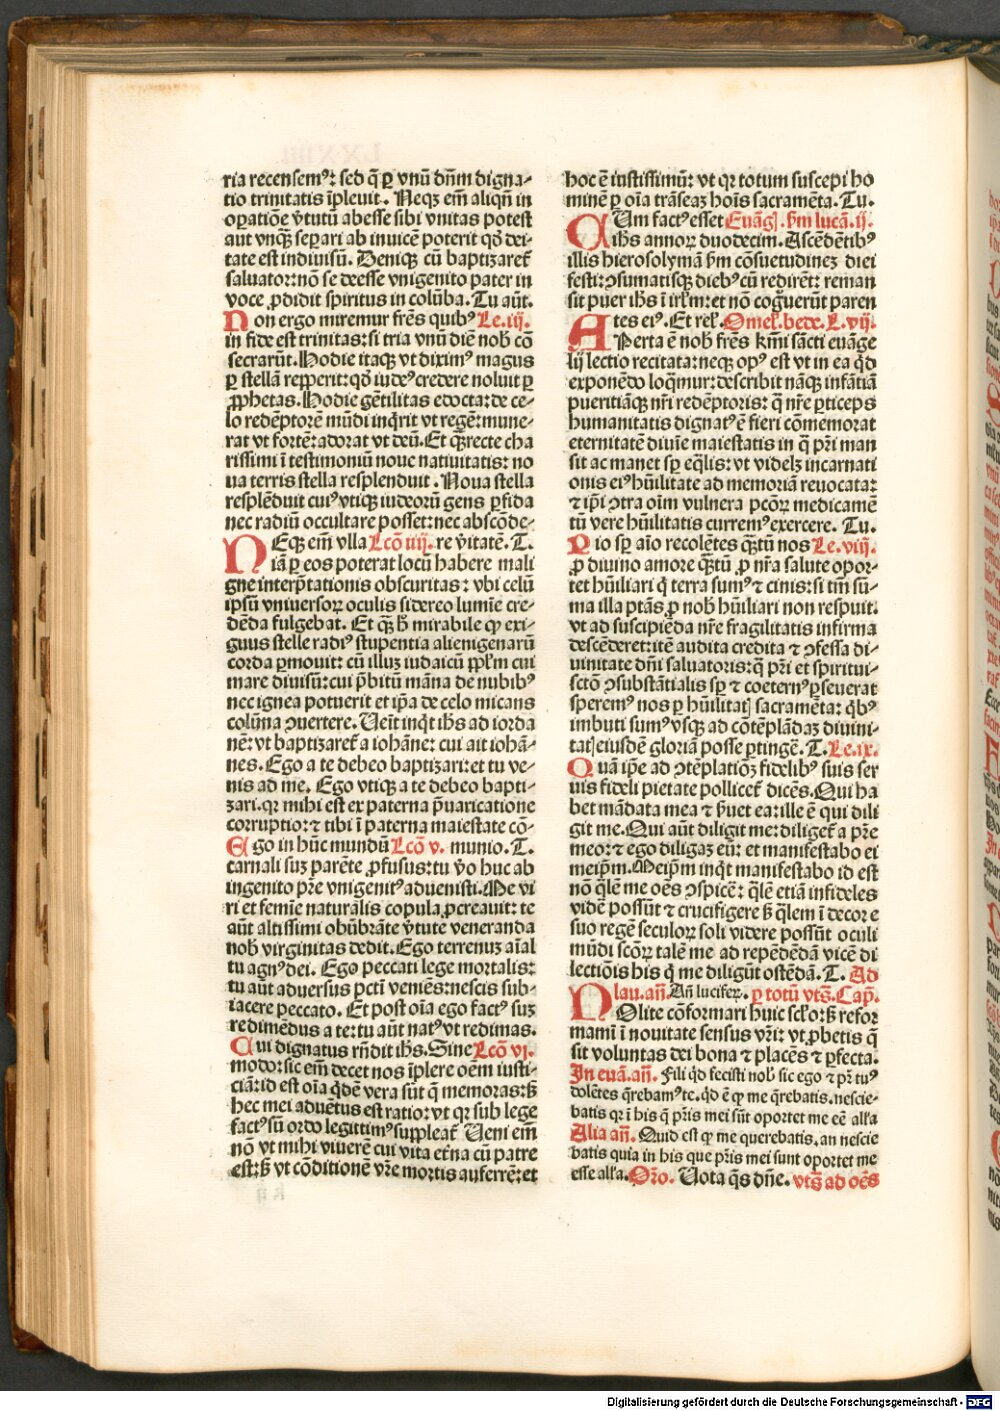 ria recensemꝰ: sed q̄ ꝑ vnū dn̄m digna⸗
tio trinitatis īpleuit. Neqꝫ em̄ aliqn̄ in
oꝑatiōe v̓tutū abesse sibi vnitas potest
aut vnqꝫ seꝑari ab inuicē poterit qd̓ dei⸗
tate est indiuisū. Deniqꝫ cū baptizaret̓
saluator: nō se deesse vnigenito pater in
voce ꝓdidit spiritus in colūba. Tu aūt.
Non ergo miremur frēs quibꝰ Le. iij.
in fide est trinitas: si tria vnū diē nob̓ cō
secrarūt. Hodie itaqꝫ vt diximꝰ magus
ꝑ stellā reꝑperit: qd̓ iudeꝰ credere noluit ꝑ
ꝓphetas. Hodie gētilitas edocta: de ce⸗
lo redēptorē mūdi inq̄rit vt regē: mune⸗
rat vt fortē: adorat vt deū. Et q̄ꝫ recte cha
rissimi ī testimoniū noue natiuitatis: no
ua terris stella resplenduit. Noua stella
resplēduit cuiꝰ vtiqꝫ iudeorū gens ꝑfida
nec radiū occultare posset: nec abscōde⸗
NEqꝫ em̄ vlla Lcō iiij. re v̓itatē. T.
iā ꝑ eos poterat locū habere mali
gne interp̄tationis obscuritas: vbi celū
ipsū vniuersoꝝ oculis sidereo lumīe cre⸗
dēda fulgebat. Et q̄ꝫ h̓ mirabile ꝙ exi⸗
guus stelle radiꝰ stupentia alienigenarū
corda ꝑmouit: cū illuꝫ iudaicū ppl̓m cui
mare diuisū: cui p̄bitū māna de nubibꝰ
nec ignea potuerit et ip̄a de celo micans
colūna ꝯuertere. Uenit inq̄t ih̓s ad iorda
nē: vt baptizaret̓ a iohāne: cui ait iohā⸗
nes. Ego a te debeo baptizari: et tu ve⸗
nis ad me. Ego vtiqꝫ a te debeo bapti⸗
zari. qꝛ mihi est ex paterna p̄uaricatione
corruptio: ⁊ tibi ī paterna maiestate cō⸗
Ego in hūc mundū Lcō v. munio. T.
carnali suꝫ parēte ꝓfusus: tu v̓o huc ab
ingenito p̄re vnigenitꝰ aduenisti. Me vi
ri et femīe naturalis copula ꝓcreauit: te
aūt altissimi obūbrāte v̓tute veneranda
nob̓ virginitas dedit. Ego terrenuꝫ aīal
tu agnꝰ dei. Ego peccati lege mortalis:
tu aūt aduersus pctū veniēs: nescis sub⸗
iacere peccato. Et post oīa ego factꝰ suꝫ
redimēdus a te: tu aūt natꝰ vt redimas.
Cui dignatus rn̄dit ih̓s. Sine Lcō vj.
modo: sic em̄ decet nos īplere oēm iusti⸗
ciā: id est oīa q̄dē vera sūt q̄ memoras: sꝫ
hec mei aduētus est ratio: vt qꝛ sub lege
factꝰ sū ordo legittimꝰ suppleat̓ Ueni em̄
nō vt mihi viuerē cui vita et̓na cū patre
est: sꝫ vt cōditionē vr̄e mortis auferrē: et
hoc ē iustissimū: vt qꝛ totum suscepi ho
minē ꝑ oīa trāseaꝫ hoīs sacramēta. Tu.
CUm factꝰ esset Euāgl̓. s̓m lucā. ij.
ih̓s annoꝝ duodecim. Ascēdētibꝰ
illis hierosolymā s̓m cōsuetudineꝫ diei
festi: ꝯsumatisqꝫ diebꝰ cū redirēt: reman
sit puer ih̓s ī irl̓m: et nō cog̓uerūt paren
tes eiꝰ. Et rel̓. Omel̓. bede. L. vij.
APerta ē nob̓ frēs km̄i sācti euāge
lij lectio recitata: neqꝫ opꝰ est vt in ea q̄d
exponēdo loq̄mur: describit nāqꝫ infātiā
pueritiāqꝫ nr̄i redēptoris: q̄ nr̄e ꝑticeps
humanitatis dignatꝰ ē fieri cōmemorat
eternitatē diuīe maiestatis in q̄ p̄ri man
sit ac manet sp̄ eq̄lis: vt videlꝫ incarnati
onis eiꝰ hūilitate ad memoriā reuocata:
⁊ ip̄i ꝯtra oīm vulnera pcōꝝ medicamē
tū vere hūilitatis curremꝰ exercere. Tu.
Pio sp̄ aīo recolētes q̄ꝫtū nos Le. viij.
ꝓ diuino amore q̄ꝫtū ꝓ nr̄a salute opor⸗
tet hūiliari q̄ terra sumꝰ ⁊ cinis: si tm̄ sū⸗
ma illa ptās ꝓ nob̓ hūiliari non respuit.
vt ad suscipiēda nr̄e fragilitatis infirma
descēderet: itē audita credita ⁊ ꝯfessa di⸗
uinitate dn̄i saluatoris: q̄ p̄ri et spiritui⸗
sctō ꝯsubstātialis sp̄ ⁊ coeternꝰ ꝑseuerat
speremꝰ nos ꝑ hūilitatꝭ sacramēta: q̄bꝰ
imbuti sumꝰ vsqꝫ ad cōtēplādaꝫ diuini⸗
tatꝭ eiusdē gloriā posse ꝑtingē. T. Le. ix.
Quā ip̄e ad ꝯtēplatiōꝫ fidelibꝰ suis ser
uis fideli pietate pollicet̓ dicēs. Qui ha
bet mādata mea ⁊ s̓uet ea: ille ē qui dili
git me. Qui aūt diligit me: diliget̓ a p̄re
meo: ⁊ ego diligaꝫ eū: et manifestabo ei
meip̄m. Meip̄m inq̄t manifestabo id est
nō q̄lē me oēs ꝯspicēt: q̄lē etiā infideles
vidē possūt ⁊ crucifigere sꝫ q̄lem ī decore
suo regē seculoꝝ soli videre possūt oculi
mūdi scōꝝ talē me ad repēdēdā vicē di
lectiōis his q̄ me diligūt ostēdā. T. Ad
lau. an̄. An̄ lucifeꝝ. ꝑ totū vts̓. Cap̄.
NOlite cōformari huic scl̓o: sꝫ refor
mami ī nouitate sensus vr̄i: vt ꝓbetis q̄
sit voluntas dei bona ⁊ placēs ⁊ ꝑfecta.
In euā. an̄. Fili qd̓ fecisti nob̓ sic ego ⁊ pr̄ tuꝰ
dolētes q̄rebamꝰ te. qd̓ ē ꝙ me q̄rebatis. nescie⸗
batis qꝛ ī his q̄ p̄ris mei sūt oportet me eē all̓a
Alia an̄. Quid est ꝙ me querebatis. an nescie
batis quia in his que p̄ris mei sunt oportet me
esse all̓a. Or̄o. Uota q̄s dn̄e. vts̓ ad oēs
Digitalisierung gefördert durch die Deutsche Forschungsgemeinschaft - DFG